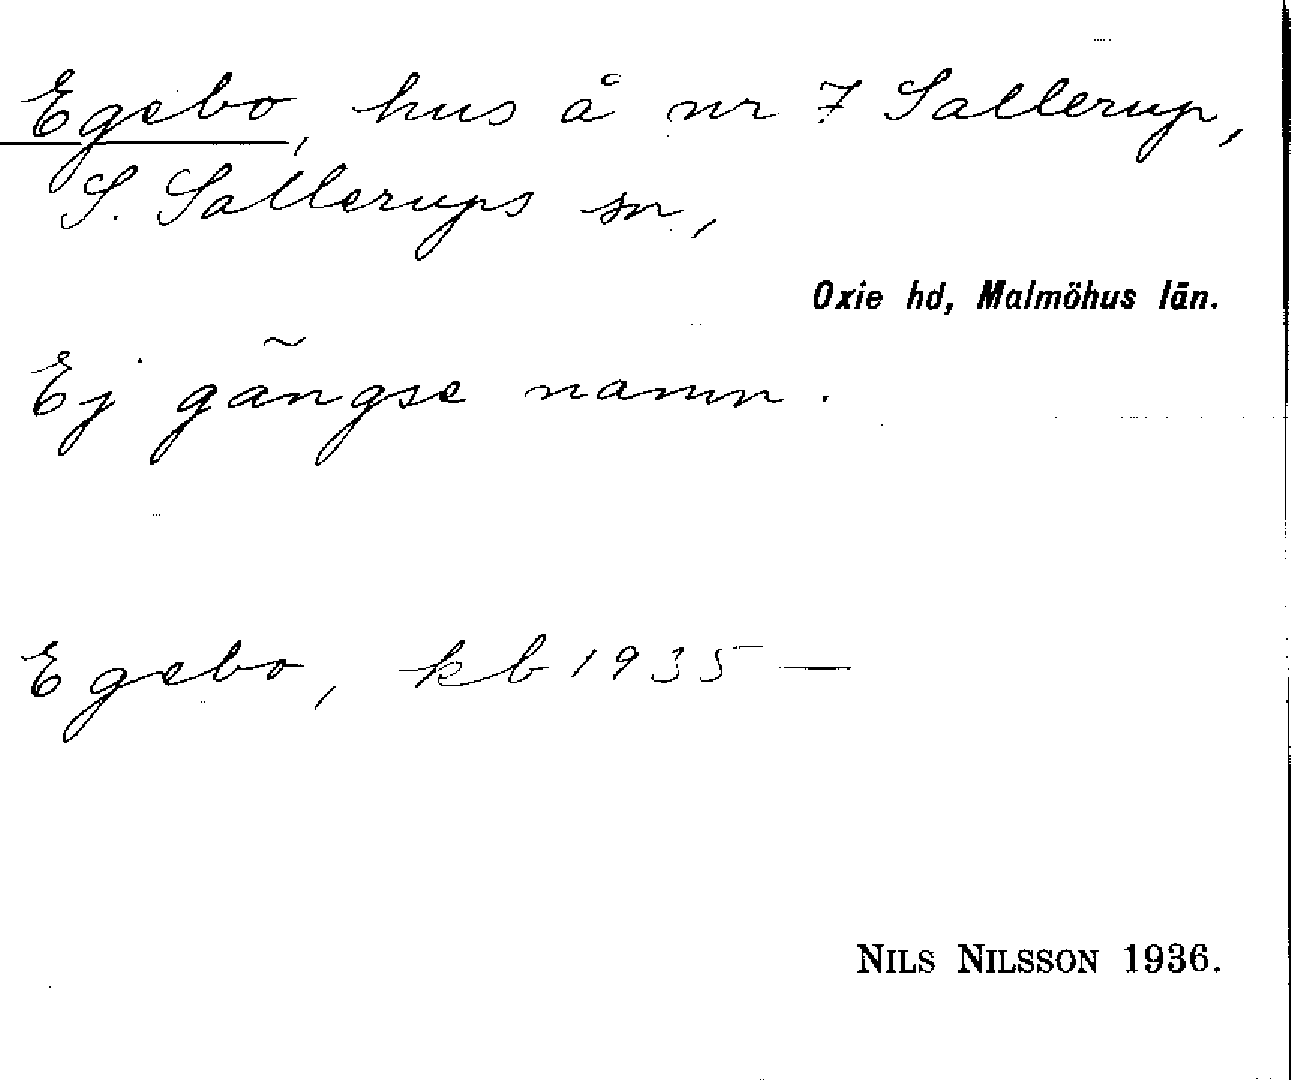 Egebo, hus å nr 7 Sallerup,
S. Sallerups sn,
Oxie hd, Malmöhus län.
Ej gängse namn.
Egebo, kb 1935 —
NILS NILSSON 1936.